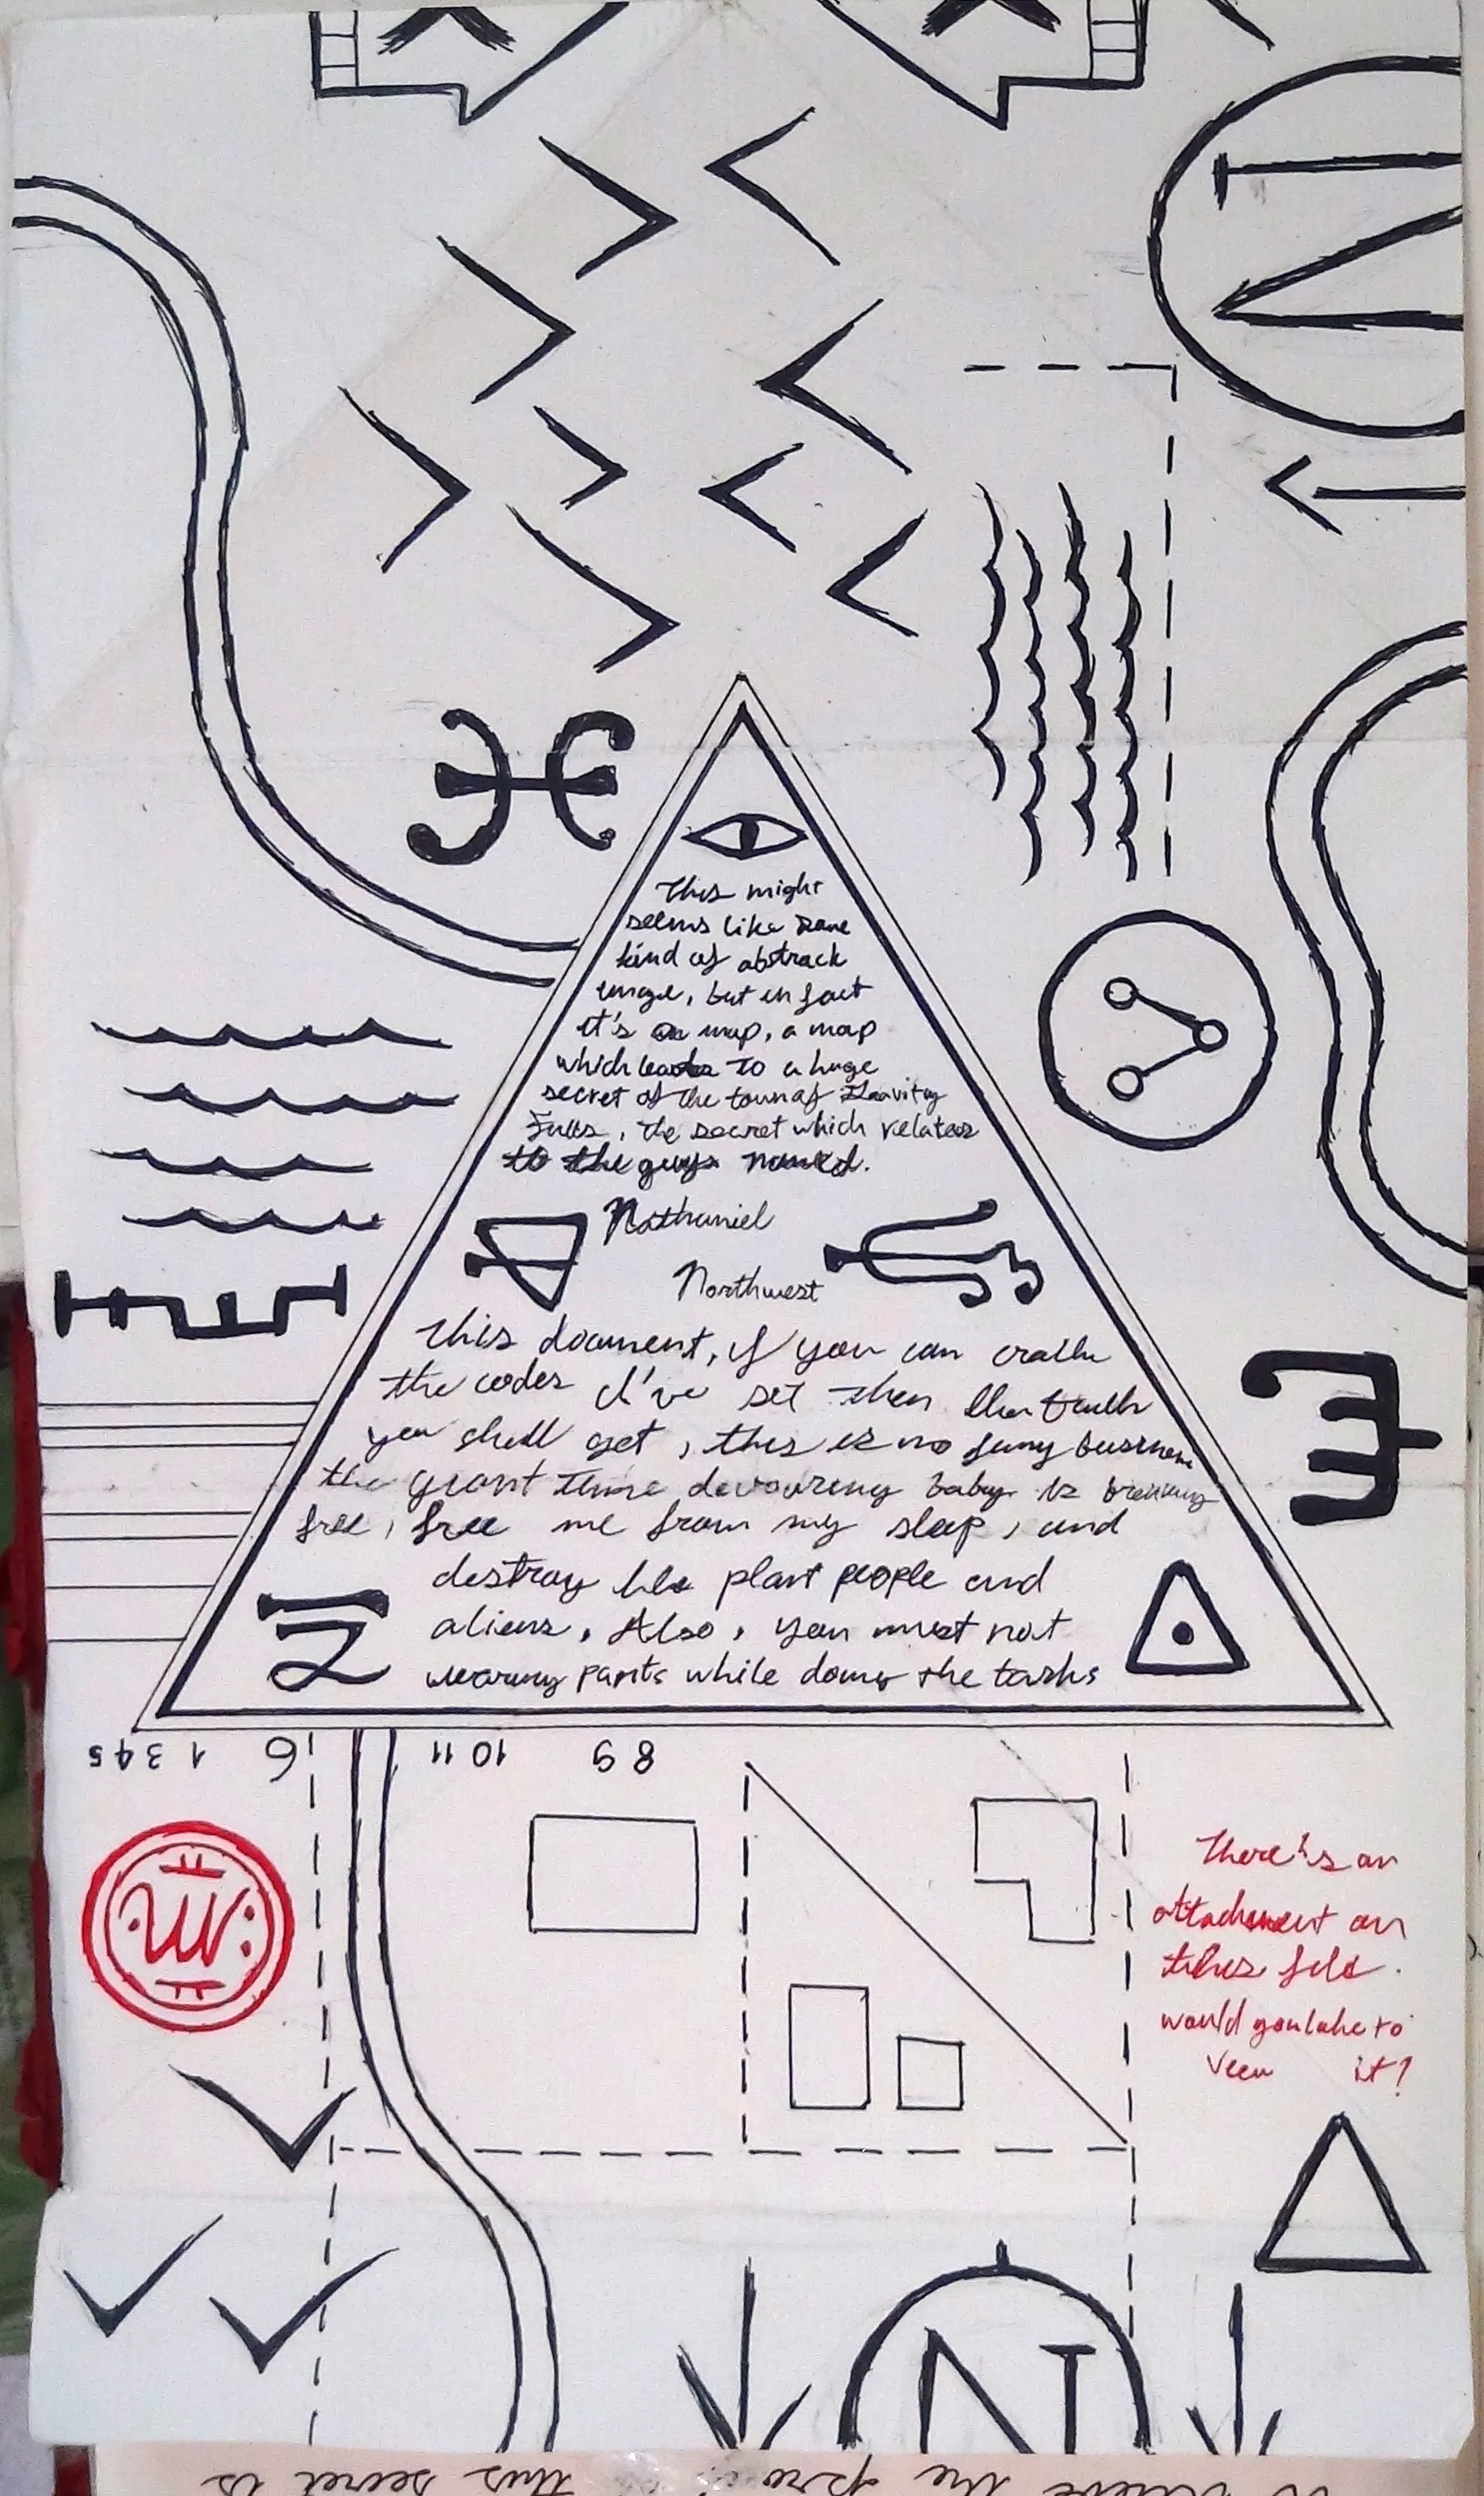 This might
seems like some
kind of abstrack
image, but in fact
it's a map, a map
which leads to a huge
secret of the town of Gravity
Falls, the secret which relates
to the guys named.
Nathaniel
Northwest
This document, if you can crack
the codes I've set then the truth
you shall get, this is no funny business
the giant time devouring baby is breaking
free, free me from my sleep, and
destroy the plant people and
aliens. Also, you must not
wearing pants while doing the tasks
5 4 3 1 6 11 10 9 8
There's an
attachment on
this fold.
would you like to
view it?
W
N
this secret is